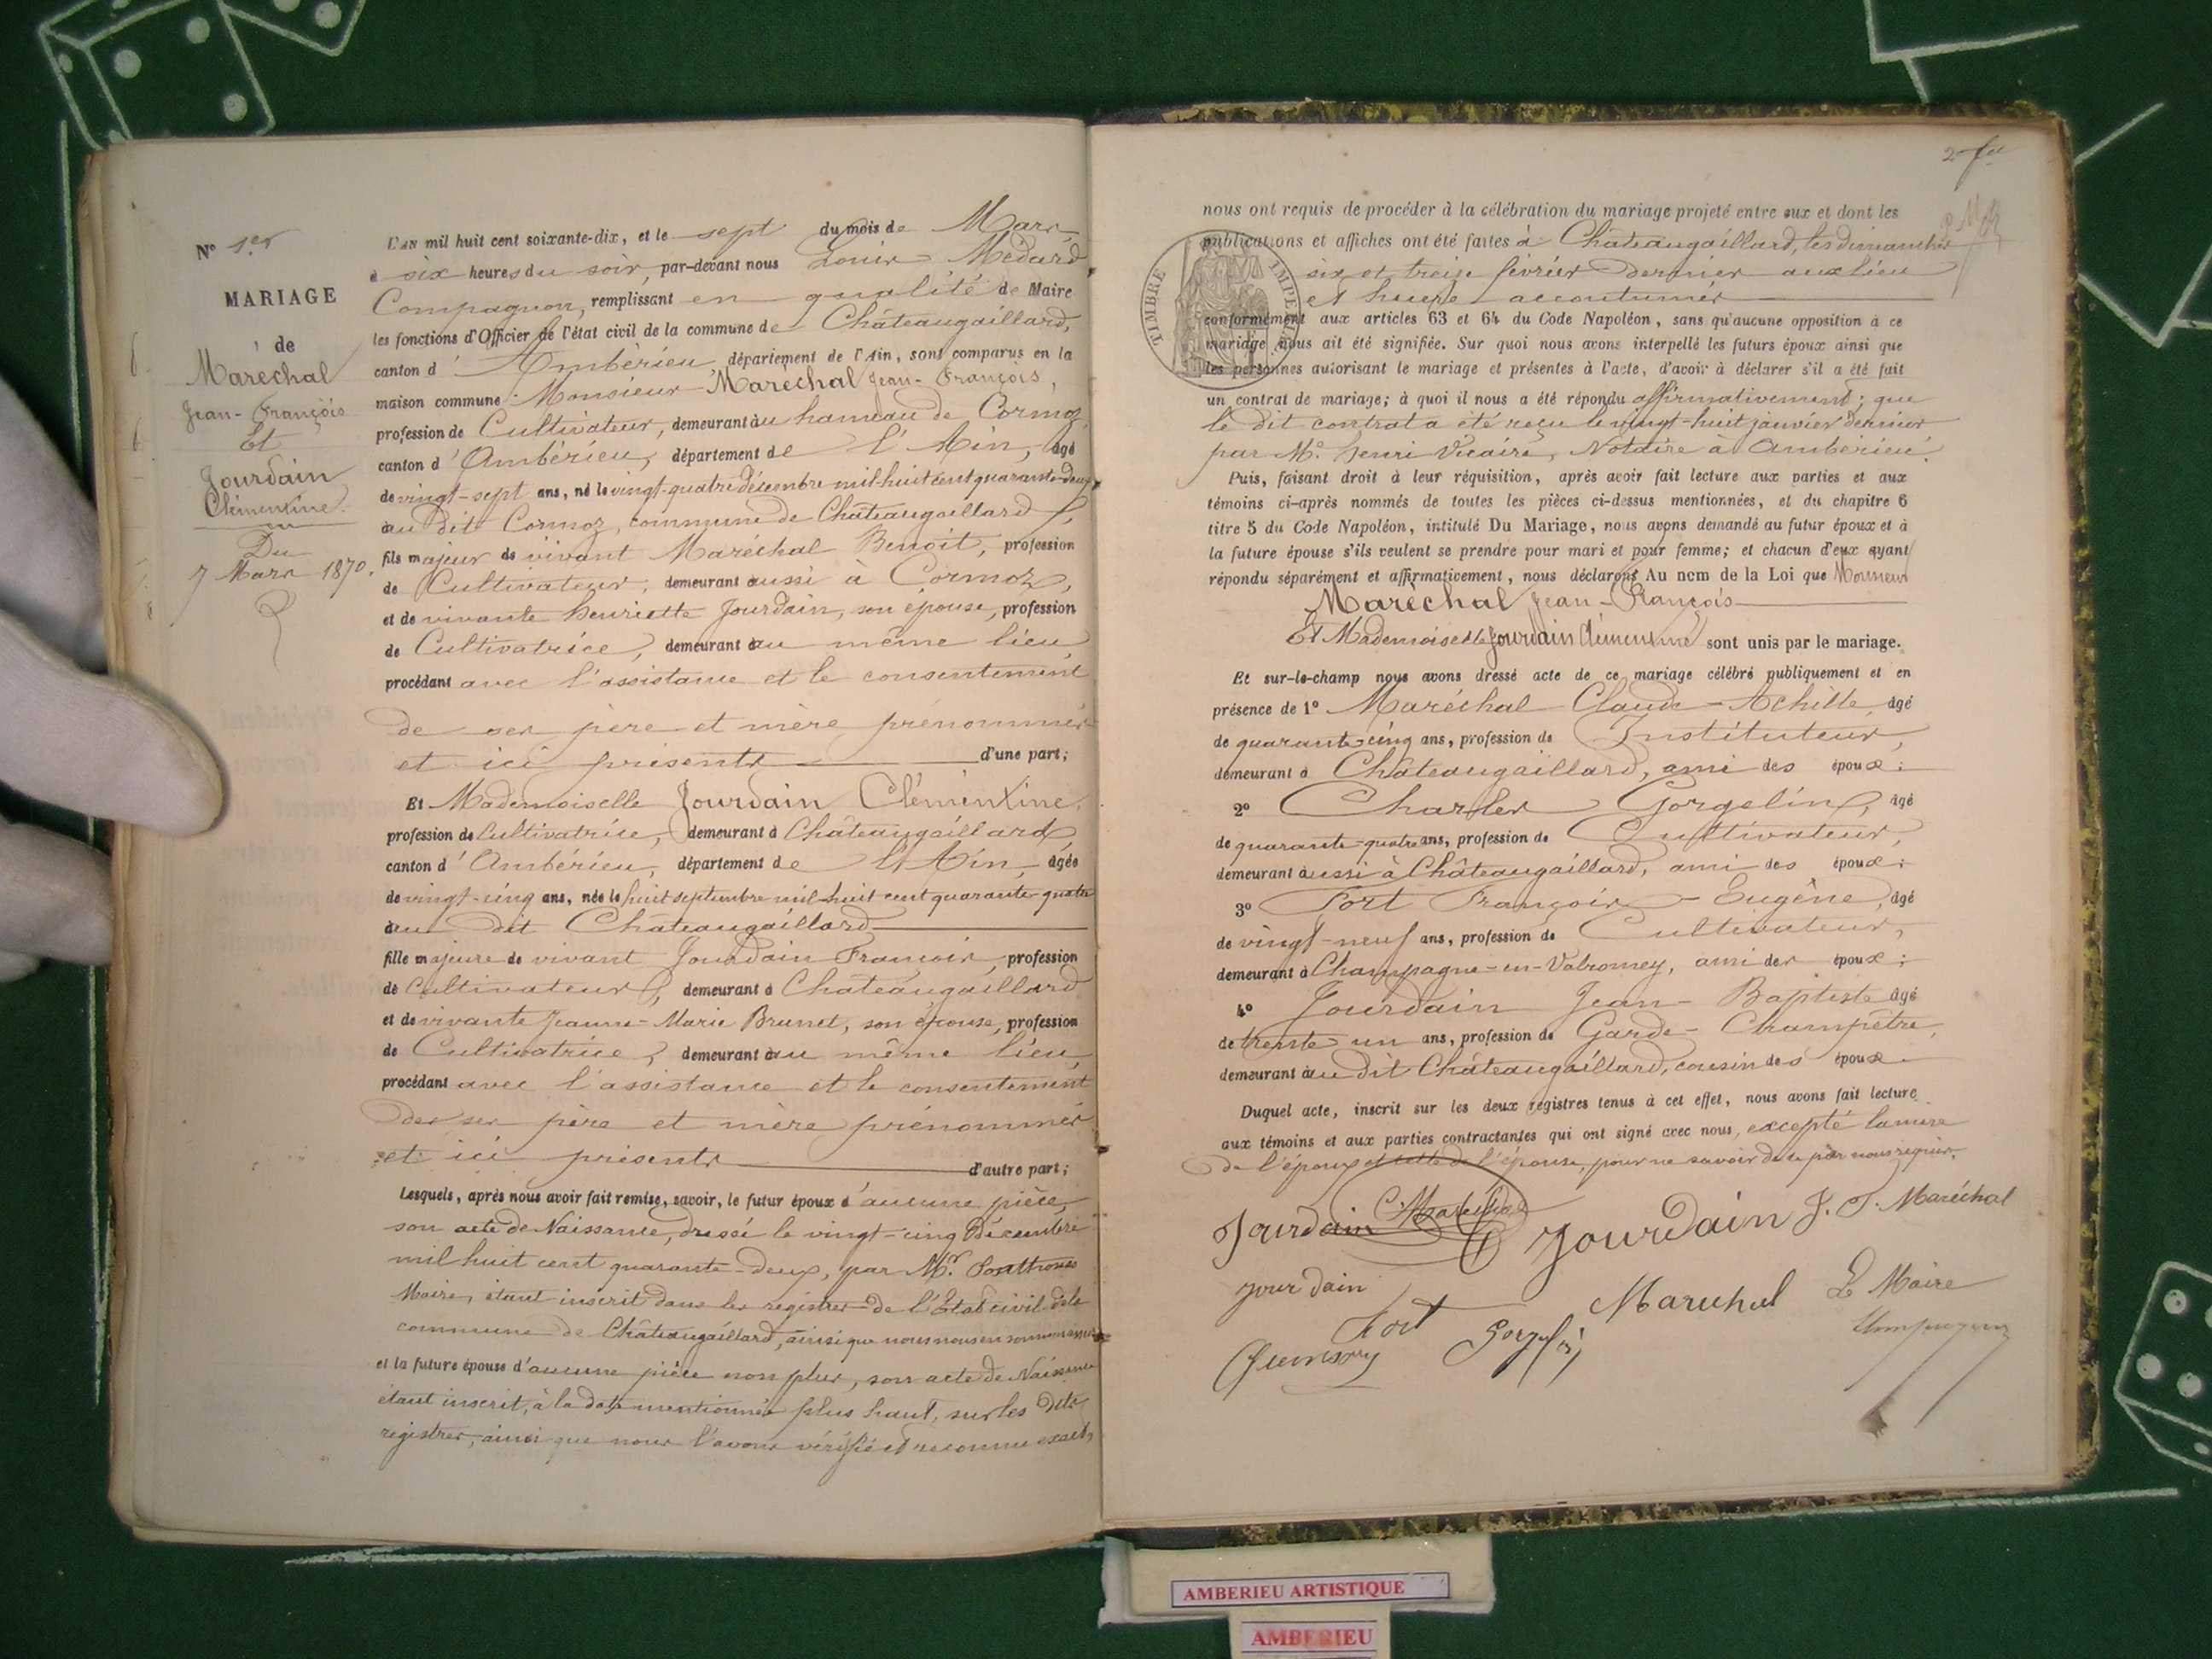 N° 1er
MARIAGE
de
Maréchal
Jean-François
Et
Jourdain
Clémentine.
Du
7 Mars 1870.
L'AN mil huit cent soixante-dix, et le sept du mois de Mars,
à six heures du soir, par-devant nous Louis Médard
Compagnon, remplissant en qualité de Maire
les fonctions d'Officier de l'état civil de la commune de Châteaugaillard,
canton d'Ambérieu, département de l'Ain, sont comparus en la
maison commune Monsieur Maréchal Jean-François,
profession de Cultivateur, demeurant au hameau de Cormoz,
canton d'Ambérieu, département de l'Ain, âgé
de vingt-sept ans, né le vingt-quatre décembre mil-huit cent quarante-deux,
au dit Cormoz, commune de Châteaugaillard,
fils majeur de vivant Maréchal Benoit, profession
de Cultivateur, demeurant aussi à Cormoz,
et de vivante henriette Jourdain, son épouse, profession
de Cultivatrice, demeurant au même lieu,
procédant avec l'assistance et le consentement
de ses père et mère prénommés
et ici présents d'une part;
Et Mademoiselle Jourdain Clémentine,
profession de Cultivatrice, demeurant à Châteaugaillard,
canton d'Ambérieu, département de l'Ain, âgée
de vingt-cinq ans, née le huit septembre mil-huit cent quarante-quatre
au dit Châteaugaillard
fille majeure de vivant Jourdain François, profession
de Cultivateur, demeurant à Châteaugaillard
et de vivante Jeanne-Marie Brunet, son épouse, profession
de Cultivatrice, demeurant au même lieu,
procédant avec l'assistance et le consentement
de ses père et mère prénommés
et ici présents d'autre part;
Lesquels, après nous avoir fait remise, savoir, le futur époux d'aucune pièce,
son acte de Naissance, dressé le vingt-cinq Décembre
mil huit cent quarante-deux, par Mr.
Maire, étant inscrit dans les registres de l'Etat civil de la
commune de Châteaugaillard, ainsi que nous nous en sommes assuré
et la future épouse d'aucune pièce non plus, son acte de Naissance
étant inscrit, à la date mentionnée plus haut, sur les dits
registres, ainsi que nous l'avons vérifié et reconnu exact,
nous ont requis de procéder à la célébration du mariage projeté entre eux et dont les
publications et affiches ont été faites à Châteaugaillard, les dimanches
six et treize février dernier aux lieu
et heure accoutumés
TIMBRE IMPERIAL
conformément aux articles 63 et 64 du Code Napoléon, sans qu'aucune opposition à ce
mariage nous ait été signifiée. Sur quoi nous avons interpellé les futurs époux ainsi que
les personnes autorisant le mariage et présentes à l'acte, d'avoir à déclarer s'il a été fait
un contrat de mariage; à quoi il nous a été répondu affirmativement; que
le dit contrat a été reçu le vingt-huit janvier dernier
par Me. henri Vicaire, Notaire à Ambérieu.
Puis, faisant droit à leur réquisition, après avoir fait lecture aux parties et aux
témoins ci-après nommés de toutes les pièces ci-dessus mentionnées, et du chapitre 6
titre 5 du Code Napoléon, intitulé Du Mariage, nous avons demandé au futur époux et à
la future épouse s'ils veulent se prendre pour mari et pour femme; et chacun d'eux ayant
répondu séparément et affirmativement, nous déclarons Au nom de la Loi que Monsieur
Maréchal Jean-François
Et Mademoiselle Jourdain Clémentine sont unis par le mariage.
Et sur-le-champ nous avons dressé acte de ce mariage célébré publiquement et en
présence de 1° Maréchal Claude-Achille, âgé
de quarante-cinq ans, profession de Instituteur,
demeurant à Châteaugaillard, ami des époux:
2° Charles Gorgelin, âgé
de quarante-quatre ans, profession de Cultivateur,
demeurant aussi à Châteaugaillard, ami des époux:
3° Fort François-Eugène, âgé
de vingt-neuf ans, profession de Cultivateur,
demeurant à Champagne-en-Valromey, ami des époux;
4° Jourdain Jean-Baptiste âgé
de trente un ans, profession de Garde-Champêtre,
demeurant au dit Châteaugaillard, cousin des époux.
Duquel acte, inscrit sur les deux registres tenus à cet effet, nous avons fait lecture
aux témoins et aux parties contractantes qui ont signé avec nous, excepté la mère
de l'époux et celle de l'épouse, pour ne savoir de ce par nous requises.
Jourdain C. Maréchal C Jourdain J. F. Maréchal
Jourdain Fort Marechal Le Maire
Gorgelin Compagnon
AMBERIEU ARTISTIQUE
AMBERIEU